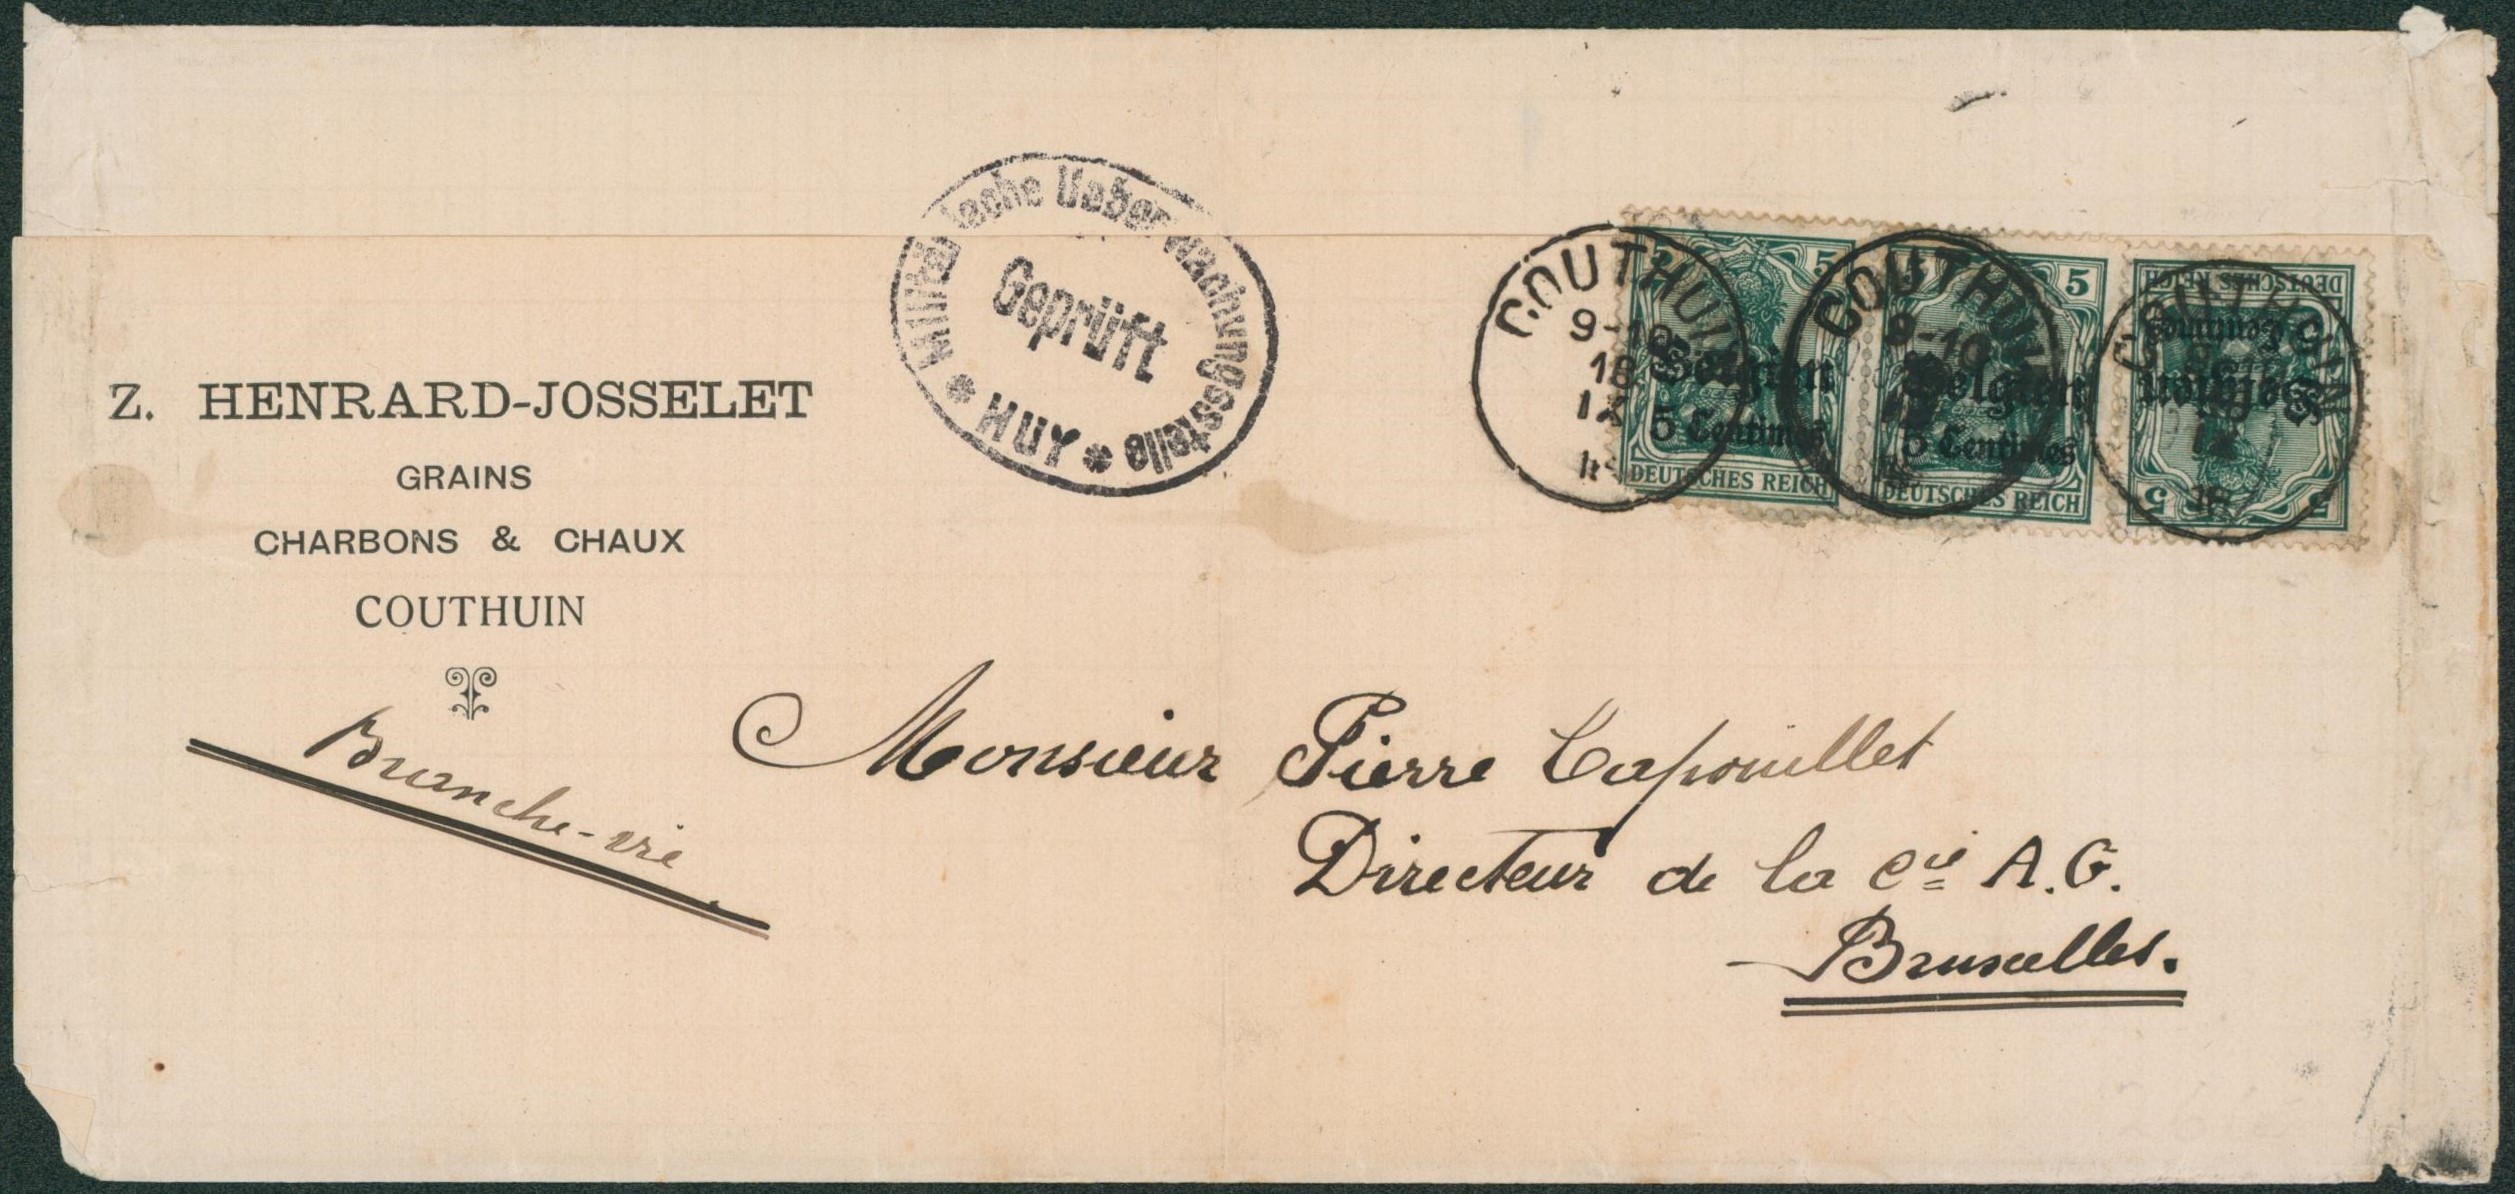 Militärische Ueberwachungsstelle
Geprüft
* HUY *
COUTHUIN
9-10
18
IX
COUTHUIN
9-10
18
IX
18
COUTHUIN
IX
18
5
Belgien
5 Centimes
DEUTSCHES REICH
5
Belgien
5 Centimes
DEUTSCHES REICH
5 5
Belgien
Centimes
DEUTSCHES REICH
Z. HENRARD-JOSSELET
GRAINS
CHARBONS & CHAUX
COUTHUIN
Branche-vie
Monsieur Pierre Capouillet
Directeur de la Cie A. G.
Bruxelles.